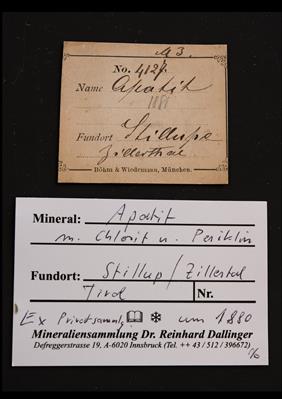 M 3.
No. 4128.
Name Apatit
1881
Fundort Stillupe
Zillerthal
Böhm & Wiedemann, München.
Mineral: Apatit
m. Chlorit u. Periklin
Fundort: Stillup / Zillertal
Tirol Nr.
Ex Privatsamml. um 1880
Mineraliensammlung Dr. Reinhard Dallinger
Defreggerstrasse 19, A-6020 Innsbruck (Tel. ++ 43 / 512 / 396672)